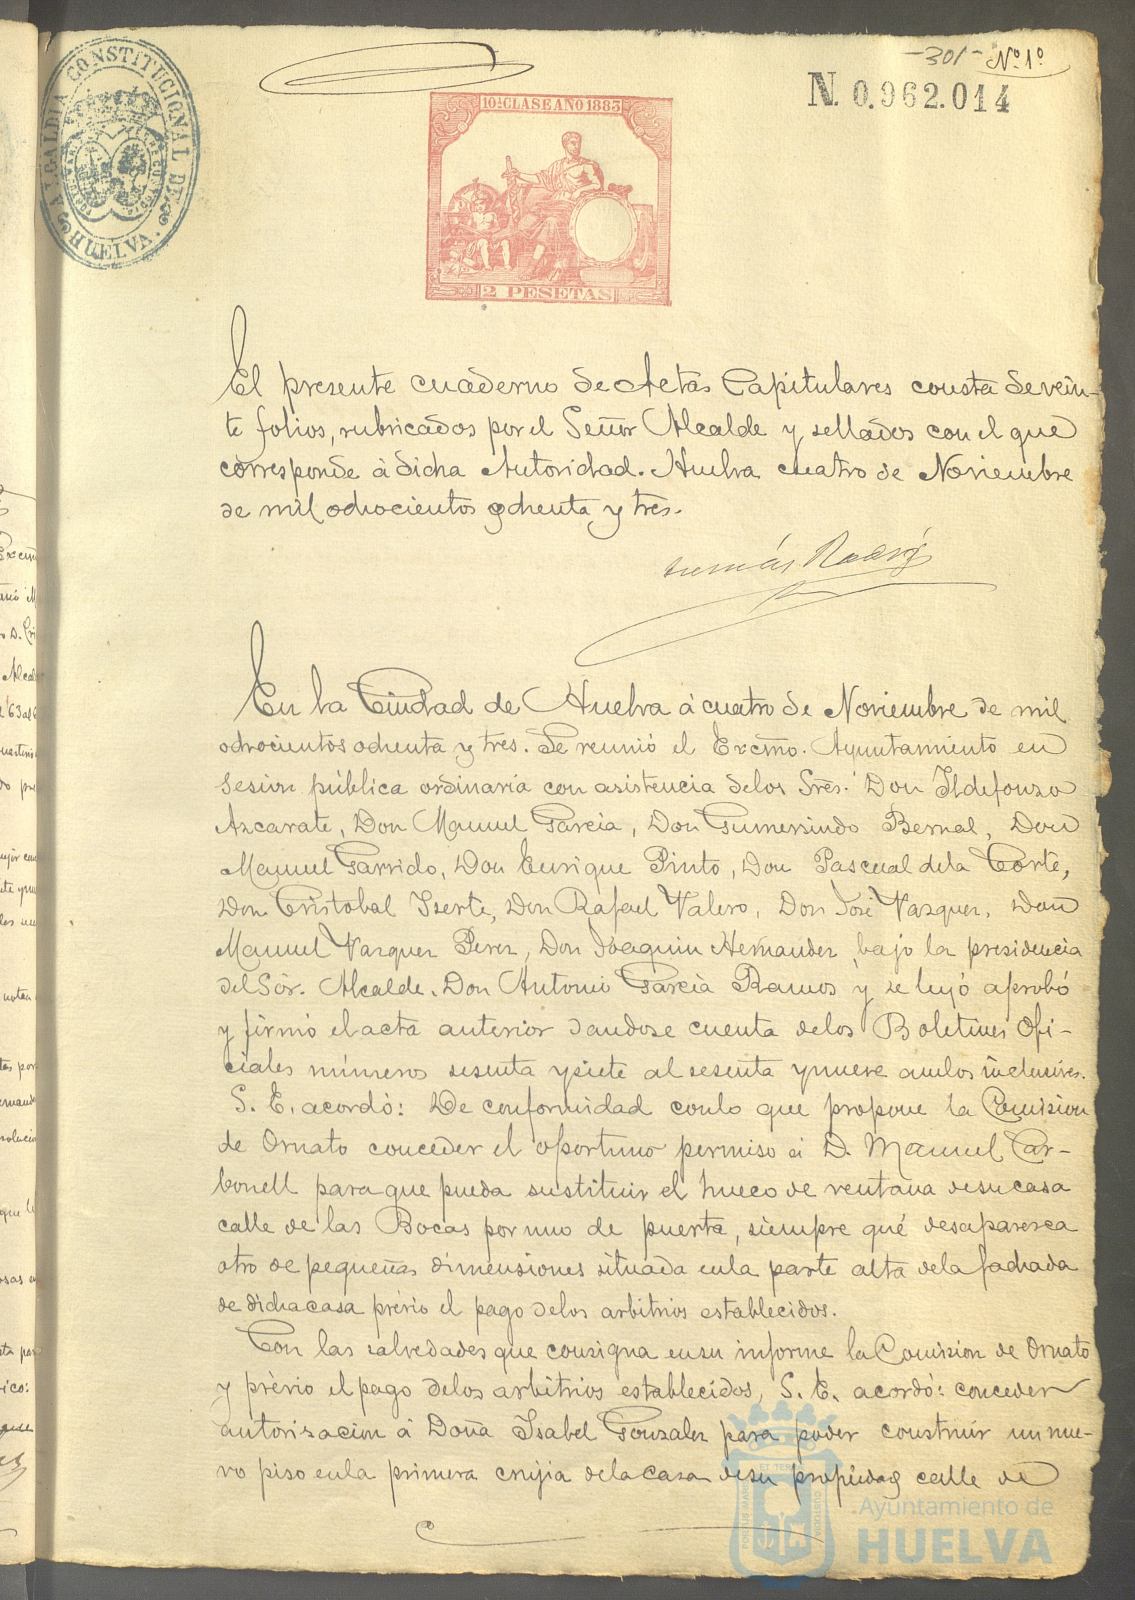 -301- Nº 1º
N. 0.962.014
ALCALDIA CONSTITUCIONAL DE HUELVA.
10ª CLASE AÑO 1883
2 PESETAS
El presente cuaderno de Actas Capitulares consta de vein-
te folios, rubricados por el Señor Alcalde y sellados con el que
corresponde á dicha Autoridad. Huelva cuatro de Noviembre
de mil ochocientos ochenta y tres.
En la Ciudad de Huelva á cuatro de Noviembre de mil
ochocientos ochenta y tres. Se reunió el Excmo. Ayuntamiento en
sesion pública ordinaria con asistencia de los Sres. Don Ildefonzo
Azcarate, Don Manuel Garcia, Don Gumersindo Bernal, Don
Manuel Garrido, Don Enrique Pinto, Don Pascual de la Corte,
Don Cristobal Iserte, Don Rafael Valero, Don José Vazquez, Don
Manuel Vazquez Perez, Don Joaquin Hernandez, bajo la presidencia
del Sór. Alcalde. Don Antonio Garcia Ramos y se leyó aprobó
y firmó el acta anterior dandose cuenta de los Boletines Ofi-
ciales números sesenta y siete al sesenta y nueve ambos inclusives.
S. E. acordó: De conformidad con lo que propone la Comision
de Ornato conceder el oportuno permiso á D. Manuel Car-
bonell para que pueda sustituir el hueco de ventana de su casa
calle de las Bocas por uno de puerta, siempre qué desaparezca
otro de pequeñas dimensiones situada en la parte alta de la fachada
de dicha casa prévio el pago de los arbitrios establecidos.
Con las salvedades que consigna en su informe la Comision de Ornato
y prévio el pago de los arbitrios establecidos, S. E. acordó: conceder
autorizacion á Doña Isabel Gonzalez para poder construir un nue-
vo piso en la primera crujia de la casa de su propiedad calle de
Ayuntamiento de
HUELVA